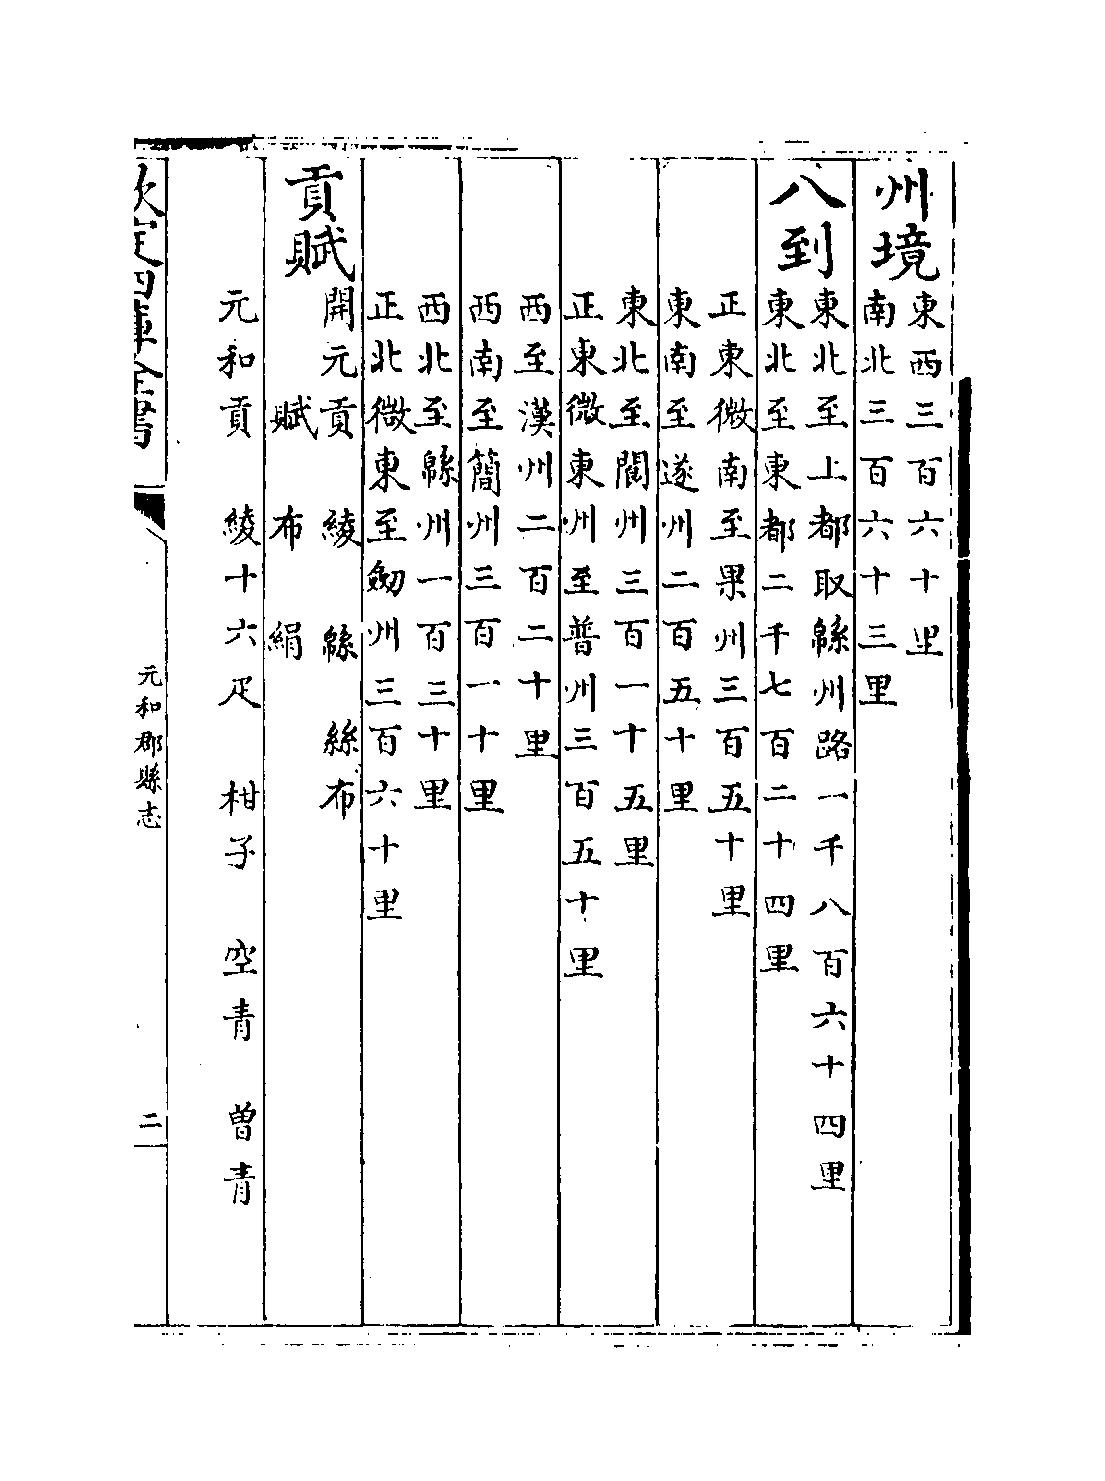 州境
東西三百六十里
南北三百六十三里
八到
東北至上都取緜州路一千八百六十四里
東北至東都二千七百二十四里
正東微南至果州三百五十里
東南至遂州二百五十里
東北至閬州三百一十五里
正東微東州至普州三百五十里
西至漢州二百二十里
西南至簡州三百一十里
西北至緜州一百三十里
正北微東至劒州三百六十里
貢賦
開元貢 綾 緜 絲布
賦 布 絹
元和貢 綾十六疋 柑子 空青 曽青
欽定四庫全書
元和郡縣志
二